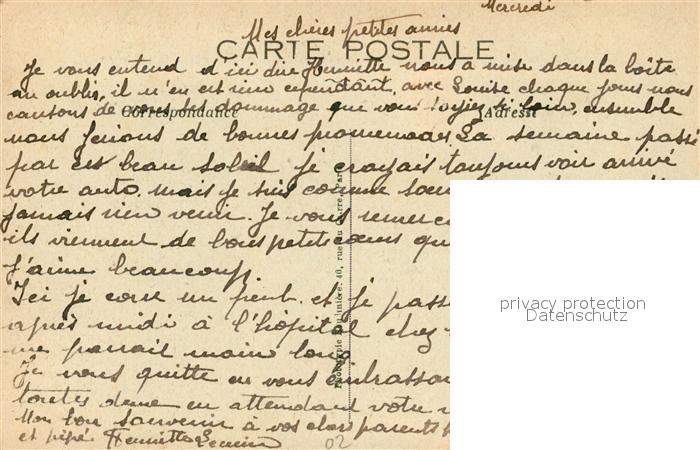 Mercredi
Mes chères petites amies
CARTE POSTALE
Je vous entend d'ici dire Henriette nous a mise dans la boîte
au oublis, il n'en est rien cependant, avec Louise chaque jour nous
causons de vous dommage que vous soyiez si loin, ensemble
Correspondance
Adresse
nous ferions de bonnes promenades La semaine passé
par ces beau soleil je croyais toujours voir arrivé
votre auto. mais je suis comme soeur
jamais rien venir. Je vous remerc
ils viennent de bons petits coeurs qu
j'aime beaucoup.
Ici je couse un peu et je pass
après midi à l'hôpital chez
me parrait moin long
Je vous quitte en vous embrassan
toutes deux en attendant votre
Mon bon souvenir à vos chers parents
et pépé. Henriette
02
privacy protection
Datenschutz